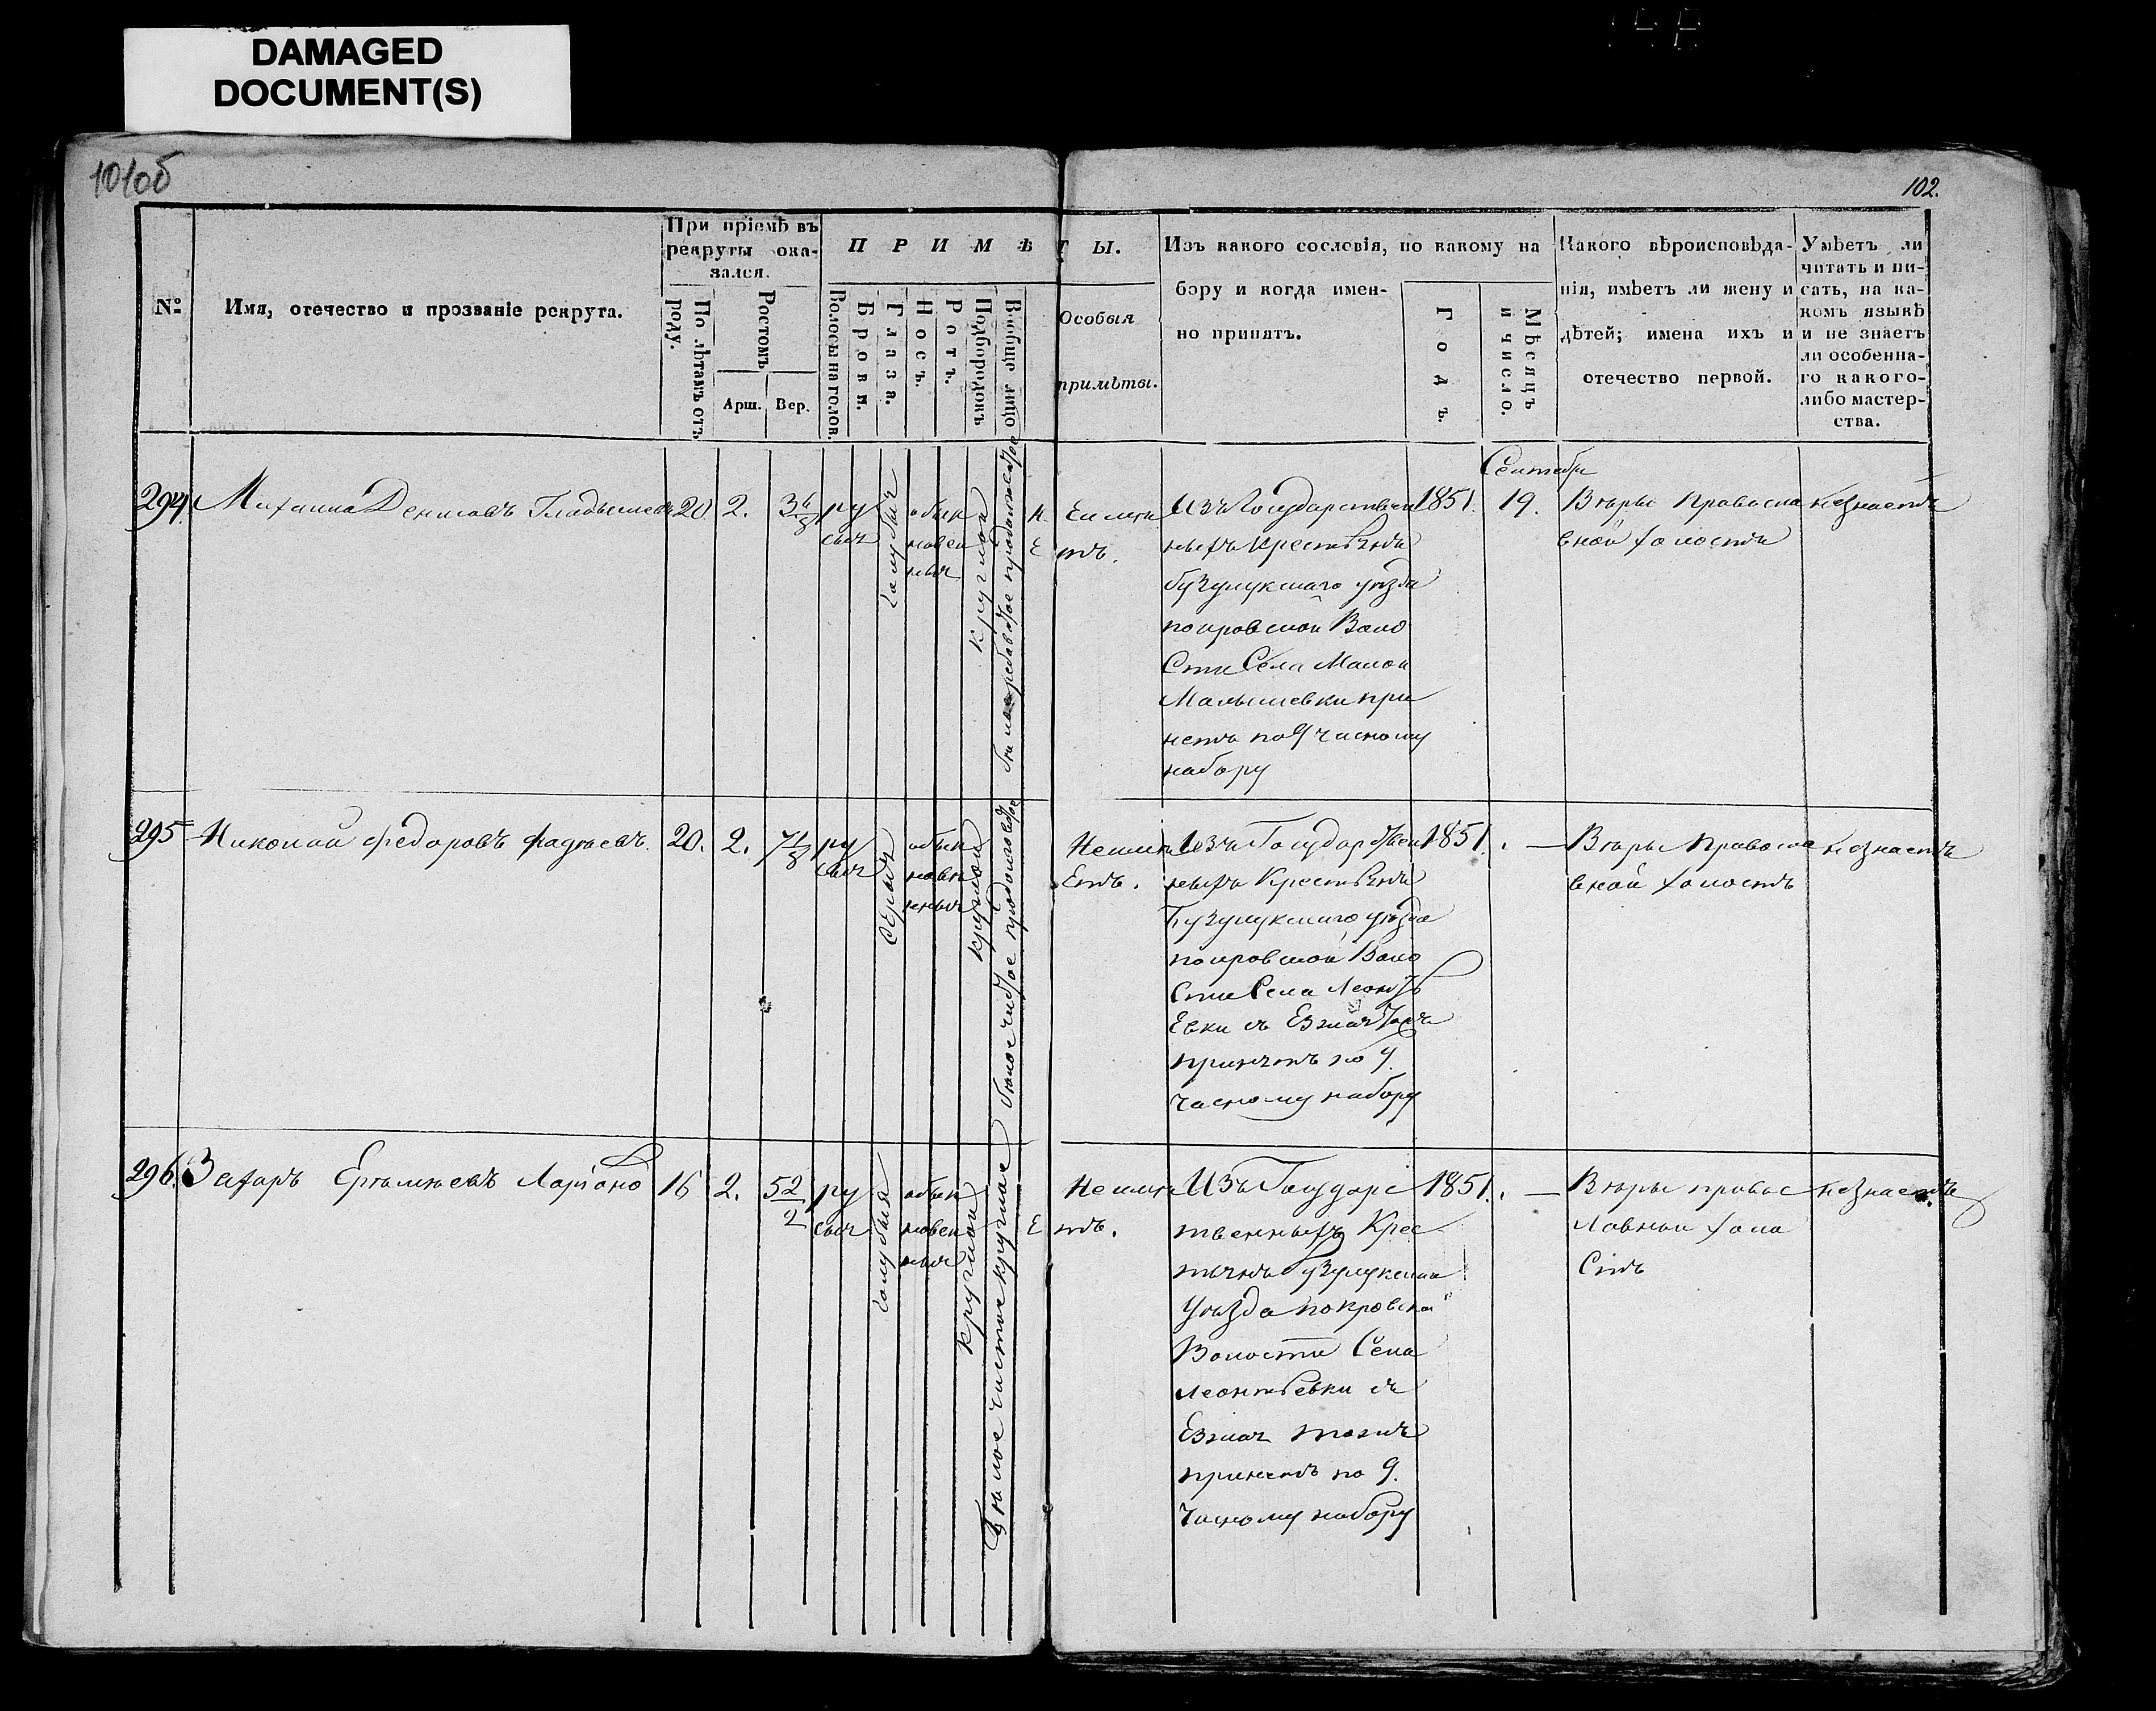 DAMAGED
DOCUMENT(S)
101об
102.
№
Имя, отечество и прозваніе рекрута.
При пріемѣ въ
рекруты ока-
зался.
По лѣтамъ отъ
роду.
Ростомъ
Арш.
Вер.
ПРИМѢТЫ.
Волосы на голов.
Брови.
Глаза.
Носъ.
Ротъ.
Подбородокъ
Вообще лицо
Особыя
примѣты.
Изъ какого сословія, по какому на
бору и когда имен-
но принятъ.
Годъ.
Мѣсяцъ
и число.
Какого вѣроисповѣда-
нія, имѣетъ ли жену и
дѣтей; имена ихъ и
отечество первой.
Умѣетъ ли
читать и пи-
сать, на ка-
комъ языкѣ
и не знаетъ
ли особенна-
го какого-
либо мастер-
ства.
294. Михаила Денисовъ Гладышевъ
20
2.
3 6/8
ру
сыя
голубыя
обык
новен
ныя
круглой
Не имѣ
етъ.
Изъ Государствен
ныхъ Крестьянъ
бузулукскаго уѣзда
покровской Воло
Сти Села Малой
Малышевки при
нетъ по 9 часному
набору
1851.
Сентебр
19.
Вѣры Правосла
вной холостъ
незнаетъ
295 Николай Федоровъ Фадѣевъ.
20.
2.
7 1/8
ру
сыя
серыя
обык
новен
ныя
круглой
белое чистое продолговатое
Неимѣ
Етъ.
Изъ Государствен
ныхъ Крестьянъ
Бузулукскаго уѣзда
покровской Воло
Сти Села Леонть
Евки съ
принятъ по 9.
часному набору
1851.
—
Вѣры Правосла
вной холостъ
незнаетъ
296. Захаръ Ермолаевъ Ларіоно
2.
52/2
ру
сыя
голубыя
обык
новен
ныя
круглой
белое чистое круглое
Неимѣ
Етъ.
Изъ Государс
твенныхъ Крес
тьянъ Бузулукскаго
Уѣзда покровской
Волости Села
Леонтьевки съ
принетъ по 9.
Часному набору
1851.
—
Вѣры правос
Лавной холо
Стъ
незнаетъ